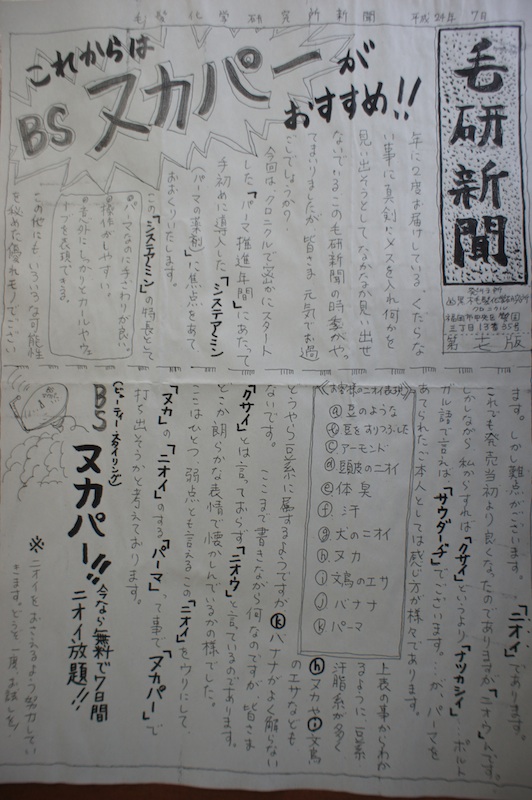 毛髪化学研究所新聞 平成24年 7月
毛研新聞
発行主所
クロニクル
福岡市中央区警固
三丁目13番85号
第七版
これからは
BS ヌカパーが
おすすめ!!
年に2度お届けしている、くだらな
い事に真剣にメスを入れ何かを
見い出そうとしてなかなか見い出せ
ないでいるこの毛研新聞の時季がや
てまいりましたが皆さま元気でお過
ごしでしょうか?
今回は、クロニクルで密かにスタート
した「パーマ推進年間」にあたって
手初めに導入した「システアミン
(パーマの薬剤)」に焦点をあてて
おおくりいたします。
この、「システアミン」の特長として
●パーマなのに手ざわりが良い。
●操作がしやすい。
●意外にしっかりとカールやウェ
ーブを表現できる。
この他にも、いろいろな可能性
を秘めた優れモノでござい
ます。しかし難点がございます。「ニオイ」であります。
これでも発売当初より良くなったのでありますが「ニオウ」んです。
しかしながら私からすれば「クサイ」というより「ナツカシイ」…ポルト
ガル語で言えば「サウダーヂ」でございます。…が、パーマを
あてられたご本人としては感じ方が様々であります。
《お客様のニオイ表現》
ⓐ豆のような
ⓑ豆をすりつぶした
ⓒアーモンド
ⓓ頭皮のニオイ
ⓔ体臭
ⓕ汗
ⓖ犬のニオイ
ⓗヌカ
ⓘ文鳥のエサ
ⓙバナナ
ⓚパーマ
上表の事からわか
るように、豆系
汗脂系が多く
ⓗヌカやⓘ文鳥
のエサなども
どうやら豆系に属するようですがⓚバナナがよく解らない
ないです。 ここまで書きながら何なのですが、皆さま
「クサイ」とは言っておらず「ニオウ」と言ているのであります。
どこか朗らかな表情で懐かしんでいるかの様でした。
ここはひとつ弱点とも言えるこの「ニオイ」をウリにして
「ヌカ」の「ニオイ」のする「パーマ」って事で「ヌカパー」で
打ち出そうかと考えております。
(ビューティースタイリング)
BS ヌカパー!!
今なら無料で7日間
ニオイ放題!!
※ニオイをおさえるよう努力してい